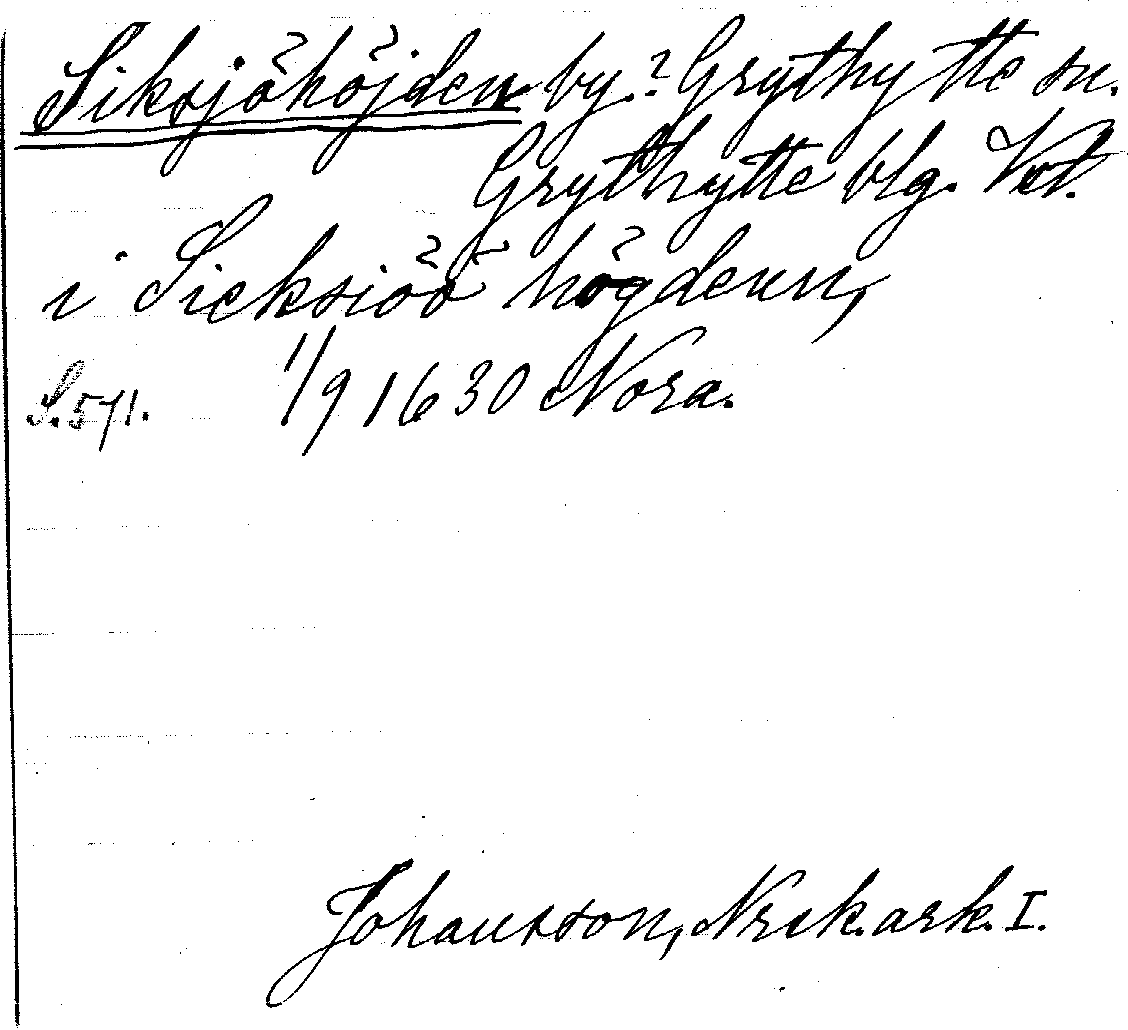 Siksjöhöjden by? Grythytte sn.
Grythytte blg. Vstl.
i Sieksiöö högdenn,
S. 571. 1/9 1630 Nora.
Johansson, Nrik.ark. I.